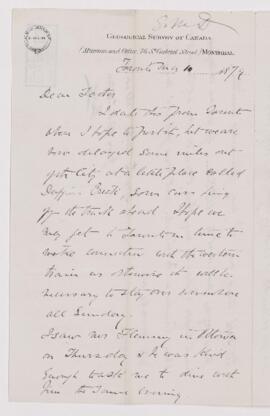 G.M.D
GEOLOGICAL SURVEY OF CANADA.
(Museum and Office, 76 St. Gabriel Street) MONTREAL
Toronto May 10 1879
Dear Father
I date this from Toronto
where I hope to post it, but we are
now delayed some miles out
of the City at a little place called
Duffins Creek, some cars being
off the track ahead. I hope we
may get to Toronto in time to
make connection with the western
train as otherwise it will be
necessary to stay over somewhere
all Sunday.
I saw Mr Fleming in Ottawa
on Thursday & he was kind
enough to ask me to dine with
him the same evening